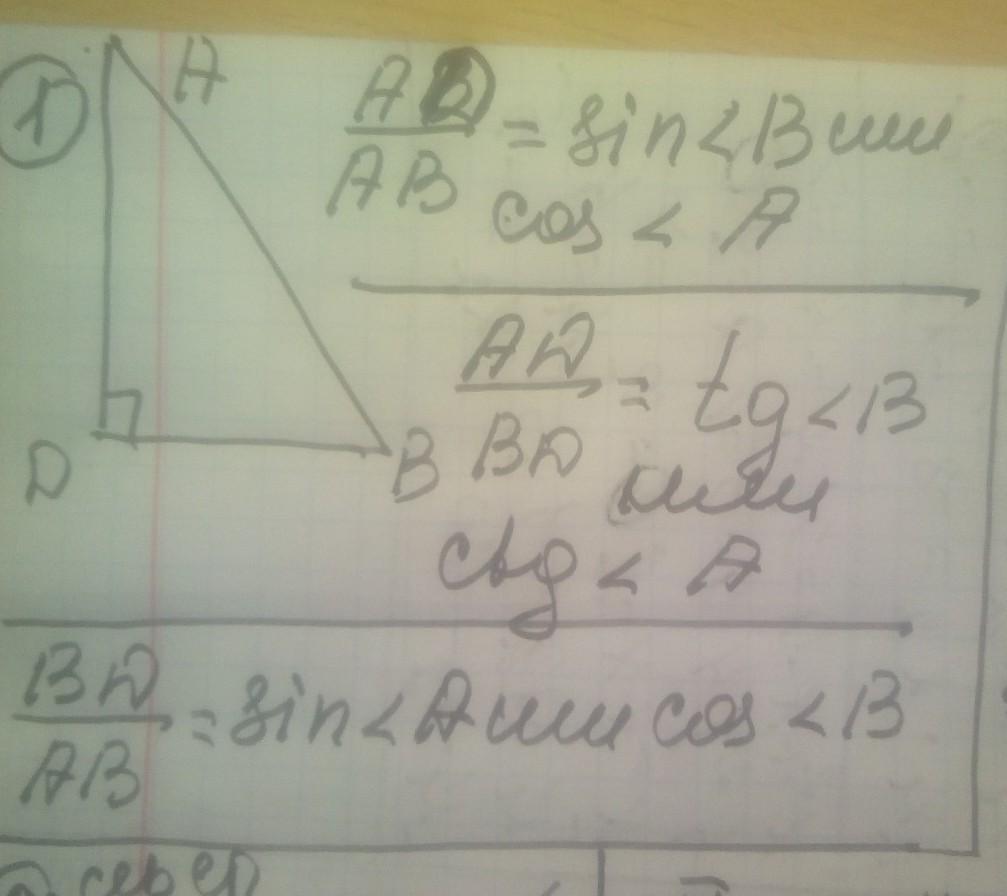 1
A
AD
AB = sin<B или
cos < A
AD
BD = tg<B
или
ctg < A
D
B
BD
AB = sin<A или cos <B